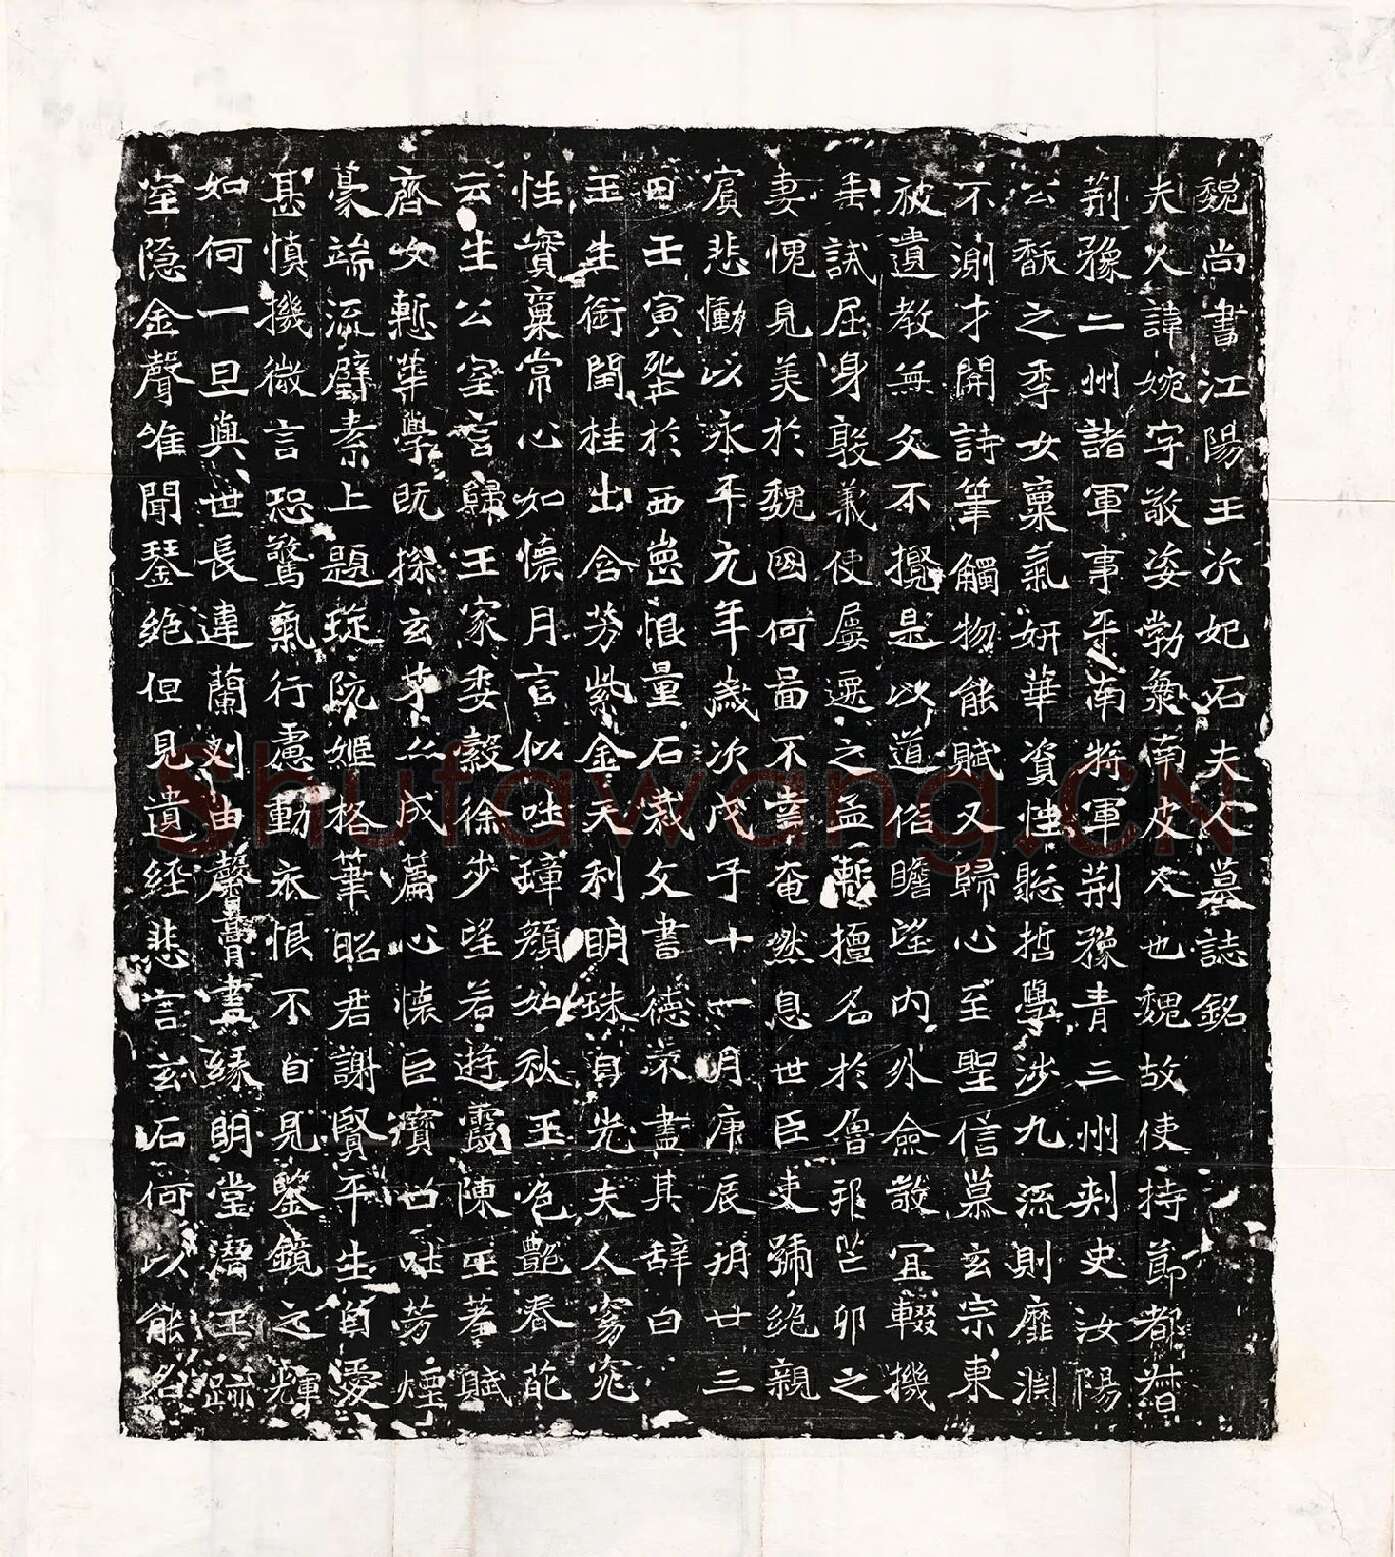 魏尚書江陽王次妃石夫人墓誌銘
夫人諱婉字敬姿勃海南皮人也魏故使持節都督
荆豫二州諸軍事平南將軍荆豫青三州刺史汝陽
公馥之季女稟氣妍華資性聰哲學涉九流則靡淵
不測才開詩筆觸物能賦又歸心至聖信慕玄宗東
被遺教無文不攬是以道俗瞻望内外僉敬宜輟機
垂誡屈身毅義使屢遷之孟慙擅名於魯邦芒卯之
妻愧見美於魏國何啚不壽奄然息世臣吏號絶親
賓悲慟以永平元年歲次戊子十一月庚辰朔廿三
日壬寅塟於西崗恨量石裁文書德不盡其辞曰
玉生銜閏桂出含芬紫金天利明珠自光夫人窈窕
性實稟常心如懷月言似吐璋顔如秋玉色艷春葩
云生公室言歸王家委縠徐步望若遊霞陳王羞賦
齊女慙華學既探玄才亦成篇心懷巨寶口吐芳煙
豪端流璧素上題琁阮姬格筆昭君謝賢平生自愛
甚慎機微言恐驚氣行慮動衣恨不自見鑒鏡之輝
如何一旦與世長違蘭刈由馨膏盡緣明堂潛玉跡
室隐金聲唯聞琴絶但見遺經悲言玄石何以能名
Shufawang.CN